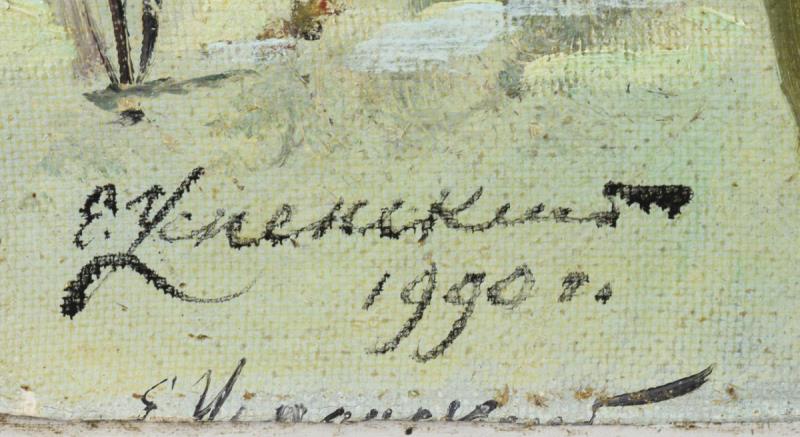 Е. Успенский
1990 г.